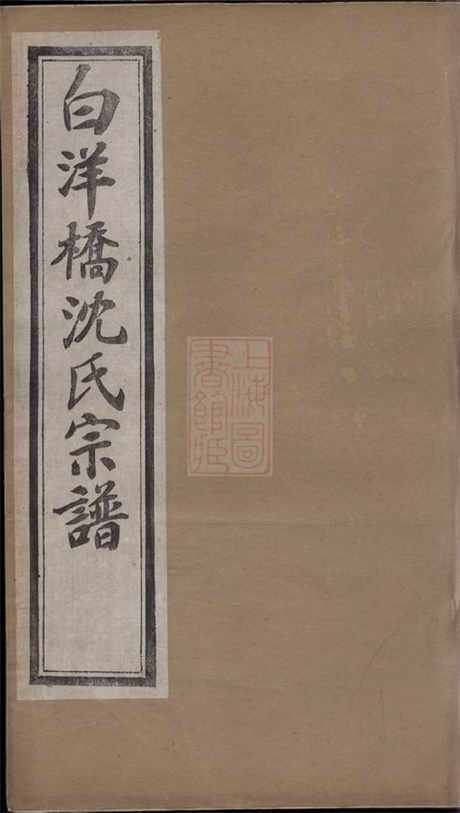 白洋橋沈氏宗譜
上海圖
書館藏